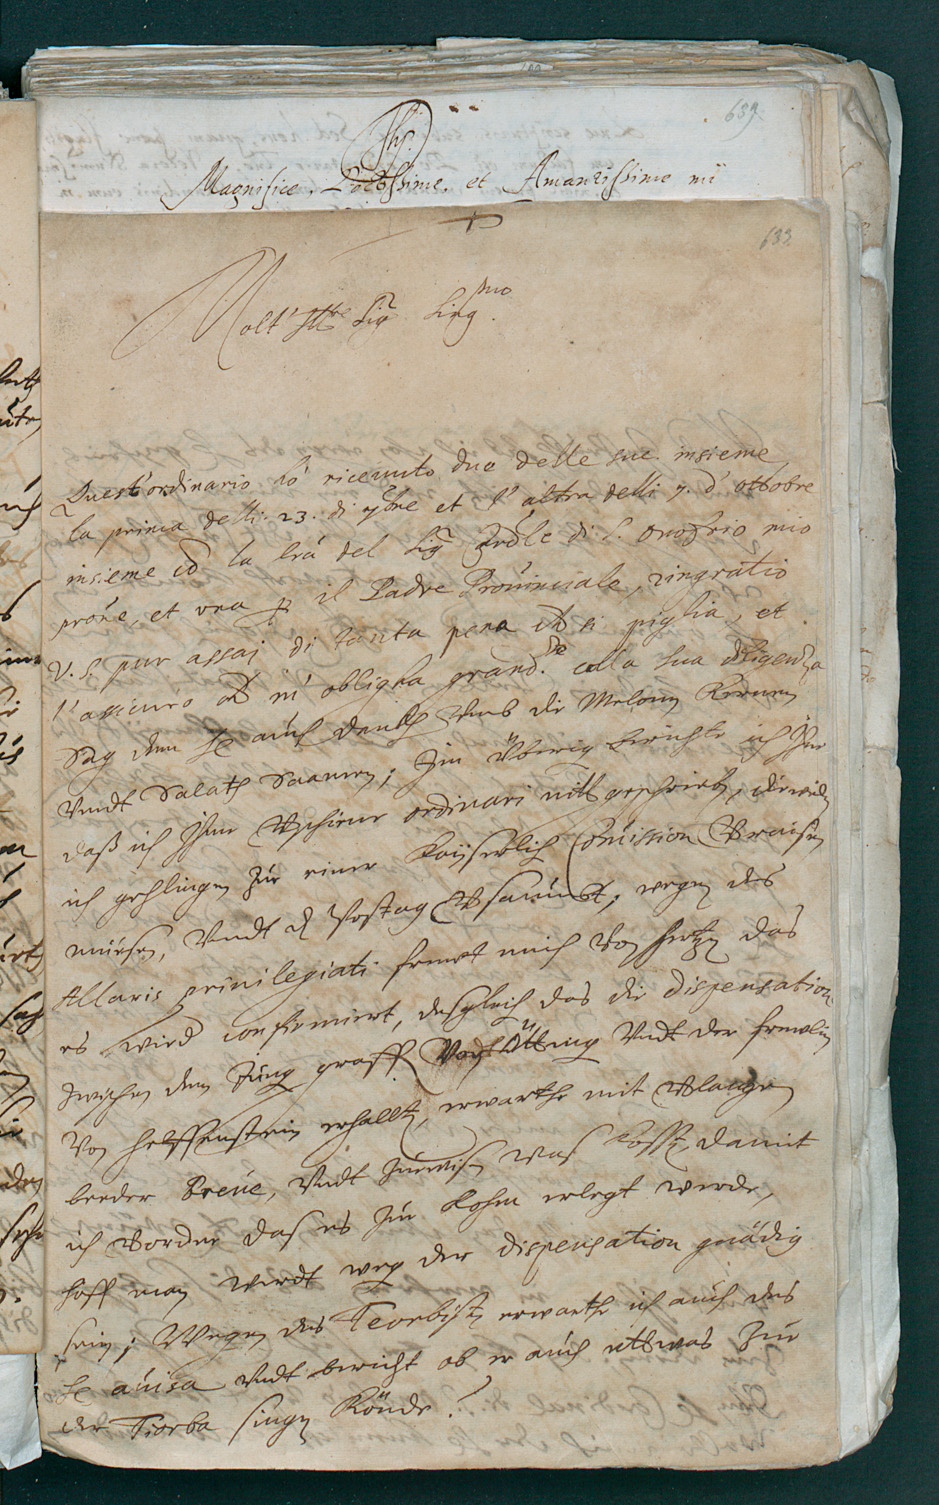 639.
Jhs.
Magnifice. Doctissime. et Amantissime mi
633
Molt' Ill.re Sig.r Sing.mo
Quest'ordinario hò riceuuto due delle sue insieme
la prima delli 23. di 7bre et l'altra delli 7. d'ottobre
insieme cō la lrā del Sig.r Cardle di S. Onofrio mio
prōne, et una p il Padre Prouinciale, ringratio
V. S. pur assaj di tanta pena che si piglia, et
l'assicuro che m' obligha grand.te colla sua diligenza
Sag dem He auch danckh umb die Melonen Kernen
Vndt Salath Saamen; Im Vberig berichte ich Ihm
daß ich Ihme Vschiene ordinari nitt geschrieben, dieweilen
ich gehlingen zur einer Kayserlich Comission Vraisen
müesen, Vndt d Postag Vsaumbt; wegen des
Altaris priuilegiati frewt mich Von hertzen das
es wird confirmiert, desgleich das die dispensation
zwischen dem Jung graff Von Ötting Vndt der frewlin
Von Helffenstein erhallten, erwarthe mit Vlangen
beeder Breue, Vndt Zuewissen was Cossten, damit
ich Vorder das es zur Rohm erlegt werde,
hoff man werdt weg der dispensation gnädig
sein; Wegen des Teorbisten erwarthe ich auch des
He auisa Vndt bericht ob er auch ettwas zur
der Tiorba singen Könde.